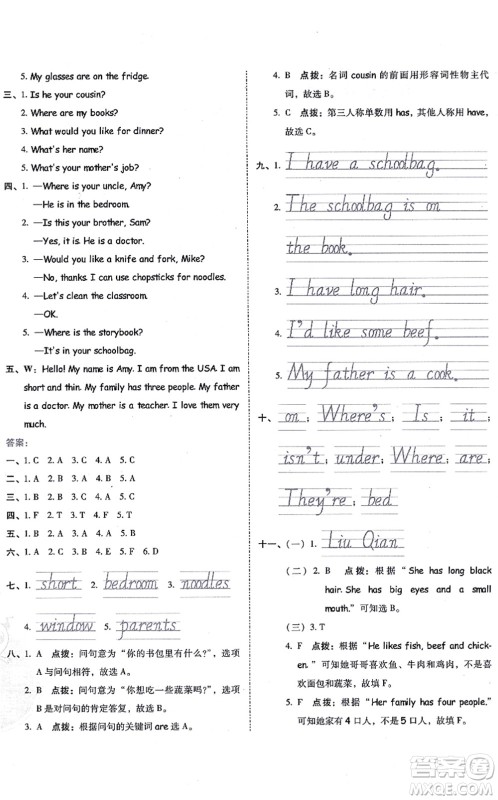 5. My glasses are on the fridge.
三、1. Is he your cousin?
2. Where are my books?
3. What would you like for dinner?
4. What's her name?
5. What's your mother's job?
四、1. —Where is your uncle, Amy?
—He is in the bedroom.
2. —Is this your brother, Sam?
—Yes, it is. He is a doctor.
3. —Would you like a knife and fork, Mike?
—No, thanks. I can use chopsticks for noodles.
4. —Let's clean the classroom.
—OK.
5. —Where is the storybook?
—It is in your schoolbag.
五、W: Hello! My name is Amy. I am from the USA. I am
short and thin. My family has three people. My father
is a doctor. My mother is a teacher. I love them very
much.
答案:
一、1. C 2. A 3. C 4. A 5. C
二、1. A 2. A 3. A 4. A 5. C
三、1. B 2. C 3. B 4. A 5. A
四、1. F 2. T 3. T 4. F 5. T
六、1. C 2. A 3. E 4. B 5. F 6. D
七、1. short 2. bedroom 3. noodles
4. window 5. parents
八、1. A 点拨:问句意为“你的书包里有什么?”,选项
A 与问句相符,故选 A。
2. B 点拨:问句意为“你想吃一些蔬菜吗?”,选项
B 为问句的肯定答复,故选 B。
3. A 点拨:根据问句的关键词 are 可知,故选 A。
4. B 点拨:名词 cousin 的前面用形容词性物主代
词,故选 B。
5. C 点拨:第三人称单数用 has,其他人称用 have,
故选 C。
九、1. I have a schoolbag.
2. The schoolbag is on
the book.
3. I have long hair.
4. I'd like some beef.
5. My father is a cook.
十、on; Where's; Is; it;
isn't; under; Where; are;
They're; bed
十一、(一) 1. Liu Qian
(二) 2. B 点拨:根据“She has long black
hair. She has big eyes and a small
mouth.”可知选 B。
(三) 3. T
4. F 点拨:根据“He likes fish, beef and chick-
en.”可知她哥哥喜欢鱼、牛肉和鸡肉,不包
包和蔬菜,故填 F。
5. F 点拨:根据“Her family has four people.”可
知她家有 4 口人,不是 5 口人,故填 F。
答案圈
MXQE.COM